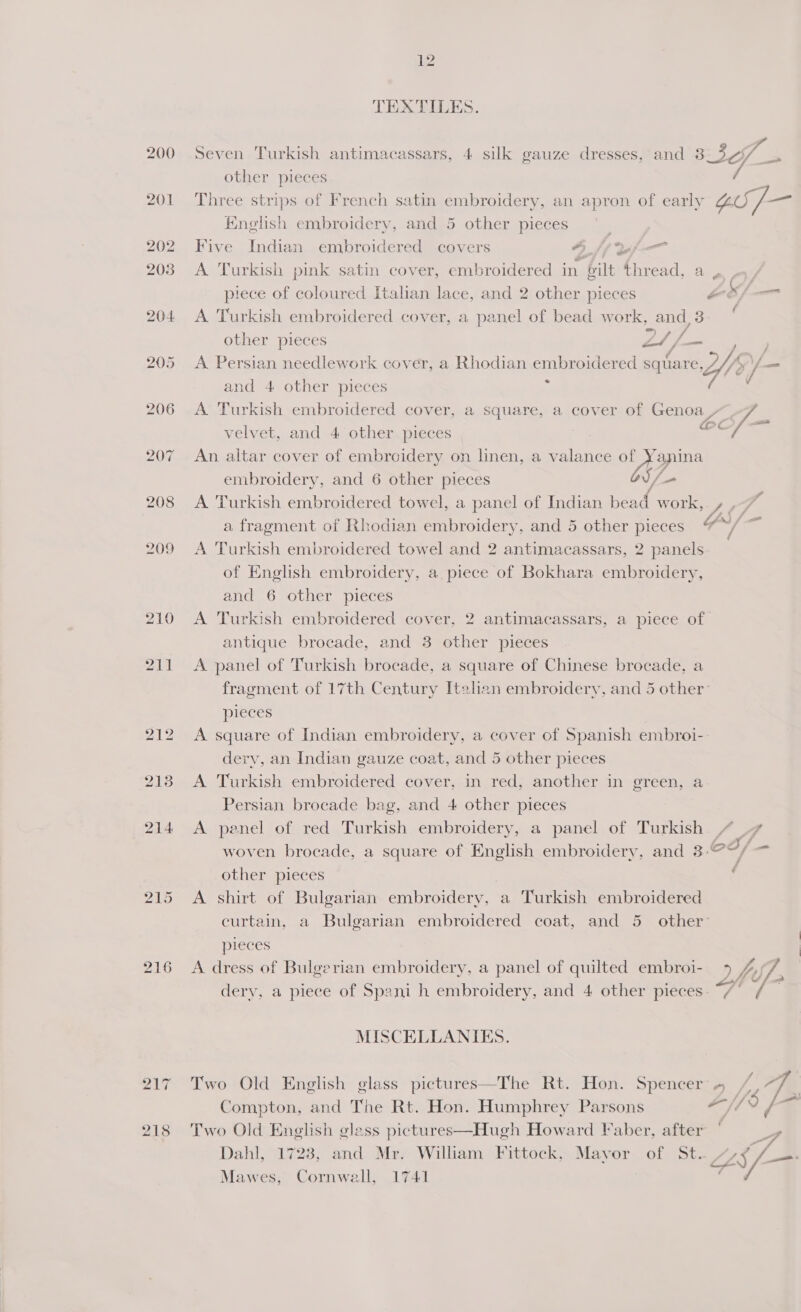 12
TEXTILES.
200 Seven Turkish antimacassars, 4 silk gauze dresses, and 3
other pieces
201 Three strips of French satin embroidery, an apron of early
English embroidery, and 5 other pieces
202 Five Indian embroidered covers
203 A Turkish pink satin cover, embroidered in gilt thread, a
piece of coloured Italian lace, and 2 other pieces
204 A Turkish embroidered cover, a panel of bead work, and 3
other pieces
205 A Persian needlework cover, a Rhodian embroidered square,
and 4 other pieces
206 A Turkish embroidered cover, a square, a cover of Genoa
velvet, and 4 other pieces
207 An altar cover of embroidery on linen, a valance of Yanina
embroidery, and 6 other pieces
208 A Turkish embroidered towel, a panel of Indian bead work,
a fragment of Rhodian embroidery, and 5 other pieces
209 A Turkish embroidered towel and 2 antimacassars, 2 panels
of English embroidery, a piece of Bokhara embroidery,
and 6 other pieces
210 A Turkish embroidered cover, 2 antimacassars, a piece of
antique brocade, and 3 other pieces
211 A panel of Turkish brocade, a square of Chinese brocade, a
fragment of 17th Century Italian embroidery, and 5 other
pieces
212 A square of Indian embroidery, a cover of Spanish embroi-
dery, an Indian gauze coat, and 5 other pieces
213 A Turkish embroidered cover, in red, another in green, a
Persian brocade bag, and 4 other pieces
214 A panel of red Turkish embroidery, a panel of Turkish
woven brocade, a square of English embroidery, and 3
other pieces
215 A shirt of Bulgarian embroidery, a Turkish embroidered
curtain, a Bulgarian embroidered coat, and 5 other
pieces
216 A dress of Bulgarian embroidery, a panel of quilted embroi-
dery, a piece of Spani h embroidery, and 4 other pieces
MISCELLANIES.
217 Two Old English glass pictures—The Rt. Hon. Spencer
Compton, and The Rt. Hon. Humphrey Parsons
218 Two Old English glass pictures—Hugh Howard Faber, after
Dahl, 1723, and Mr. William Fittock, Mayor of St.
Mawes, Cornwall, 1741